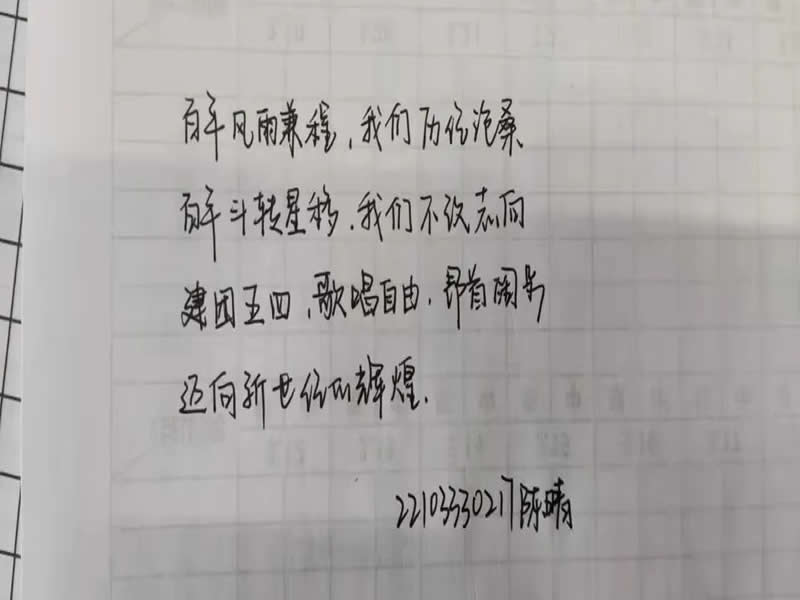 百年风雨兼程,我们历经沧桑
百年斗转星移.我们不改志向
建团五四,歌唱自由.昂首阔步
迈向新世纪的辉煌.
22103330217陈晴